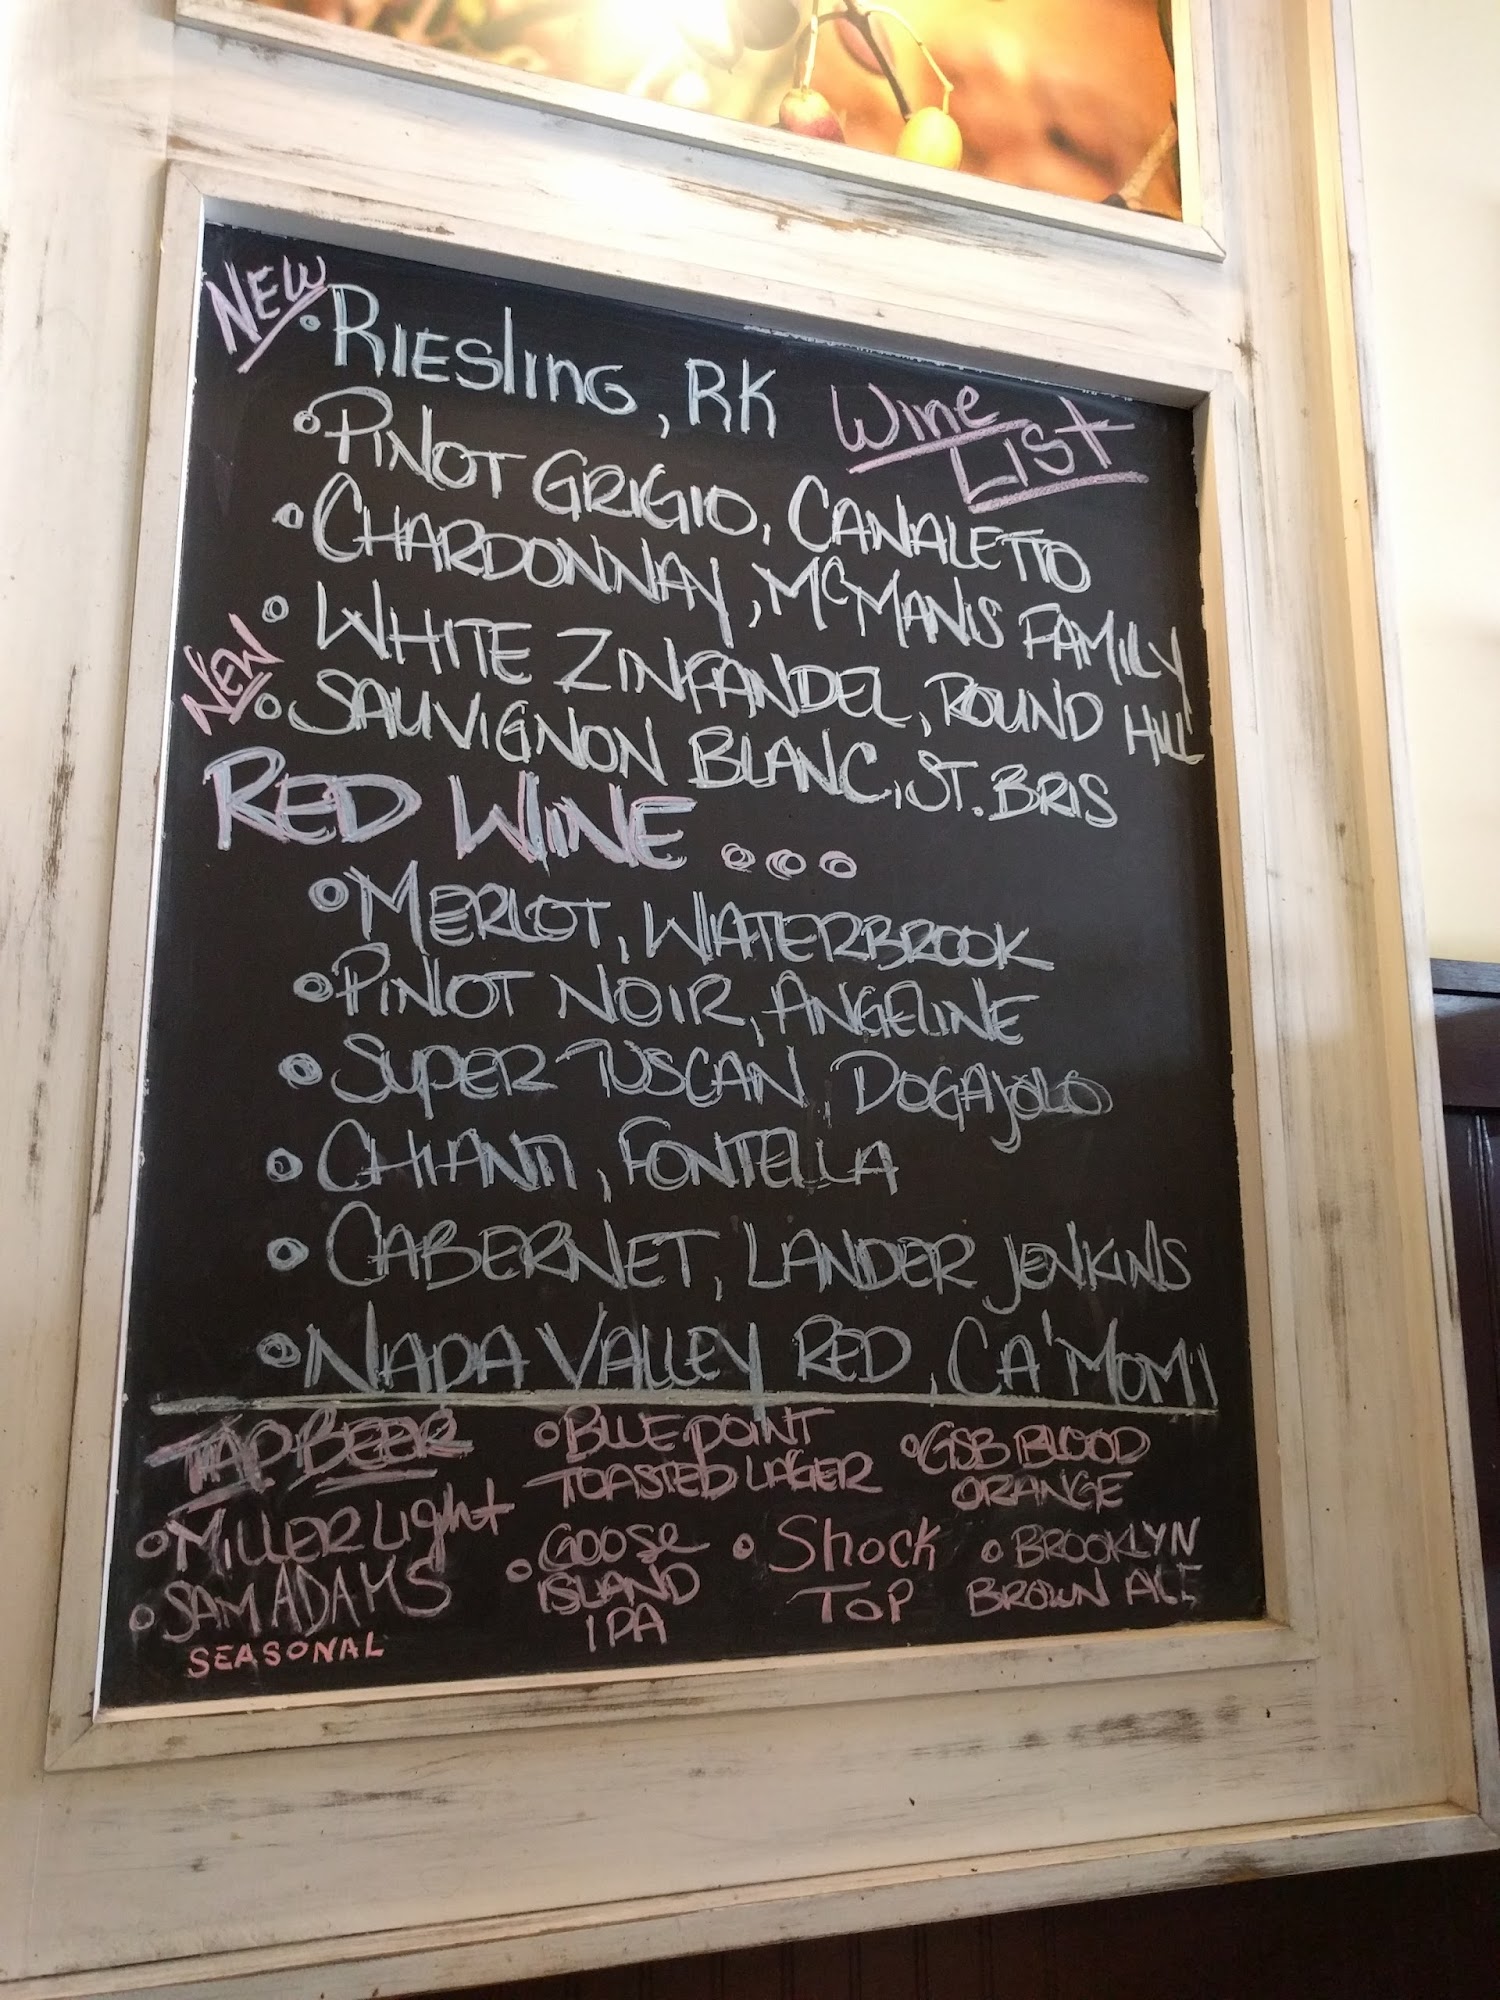 NEW
• Riesling, RK
Wine
List
• PINOT GRIGIO, CANALETTO
• CHARDONNAY, McMANIS FAMILY
• WHITE ZINFANDEL, ROUND HILL
NEW
• SAUVIGNON BLANC, ST. BRIS
RED WINE ...
• MERLOT, WATERBROOK
• PINOT NOIR, ANGELINE
• Super TUSCAN, DOGAjOLO
• CHIANTI, FONTELLA
• CABERNET, LANDER JENKINS
• NAPA VALLEY RED, CA'MOMI
TAP BEER
• MILLER Light
• SAM ADAMS
SEASONAL
• BLUE POINT
TOASTED LAGER
• GOOSE
ISLAND
IPA
• GSB BLOOD
ORANGE
• Shock
TOP
• BROOKLYN
BROWN ALE